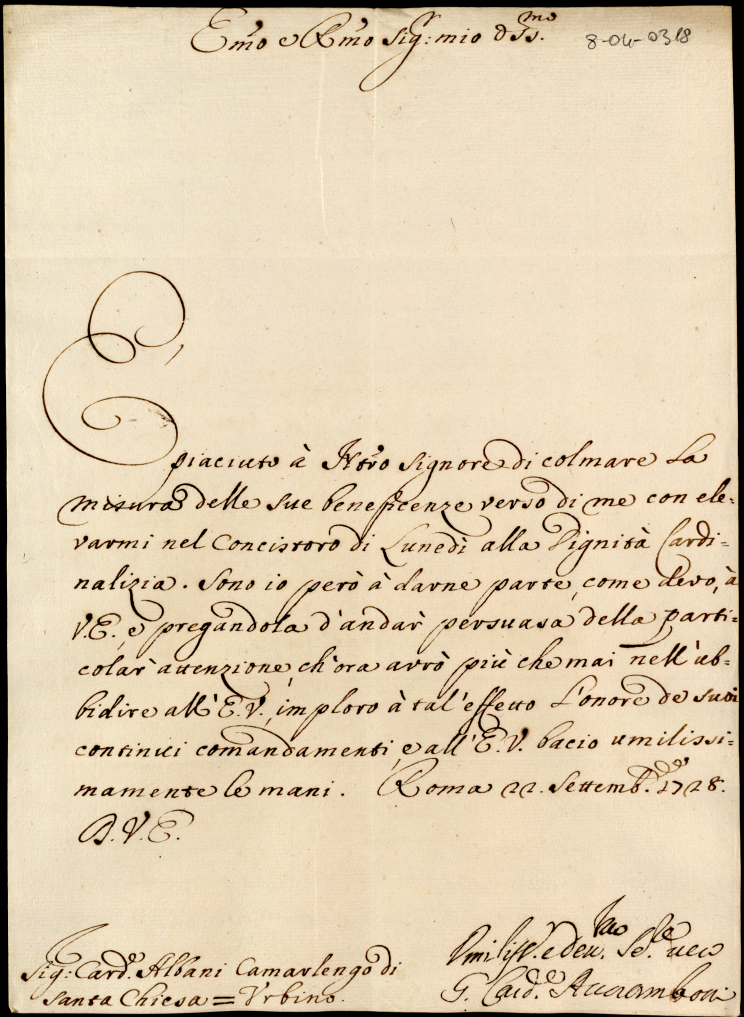 Em̃o e Rm̃o Sig.r mio Oss.mo
8-04-0318
E, piaciuto à Nr̃o Signore di colmare la
misura delle sue beneficenze verso di me con ele-
varmi nel Concistoro di Lunedì alla Dignità Cardi-
nalizia. Sono io però à darne parte, come devo, à
V.E., e pregandola d'andar persuasa della parti-
colar attenzione, ch'ora avrò più che mai nell'ub-
bidire all'E.V., imploro à tal'effetto l'onore de suoi
continui comandamenti, e all'E.V. bacio umilissi-
mamente le mani. Roma 22. Settemb.re 1728.
D.V.E.
Sig.r Card.e Albani Camarlengo di
Santa Chiesa = Urbino.
Umiliss.o e dev.mo Se.re vero
G. Card.e Accoramboni